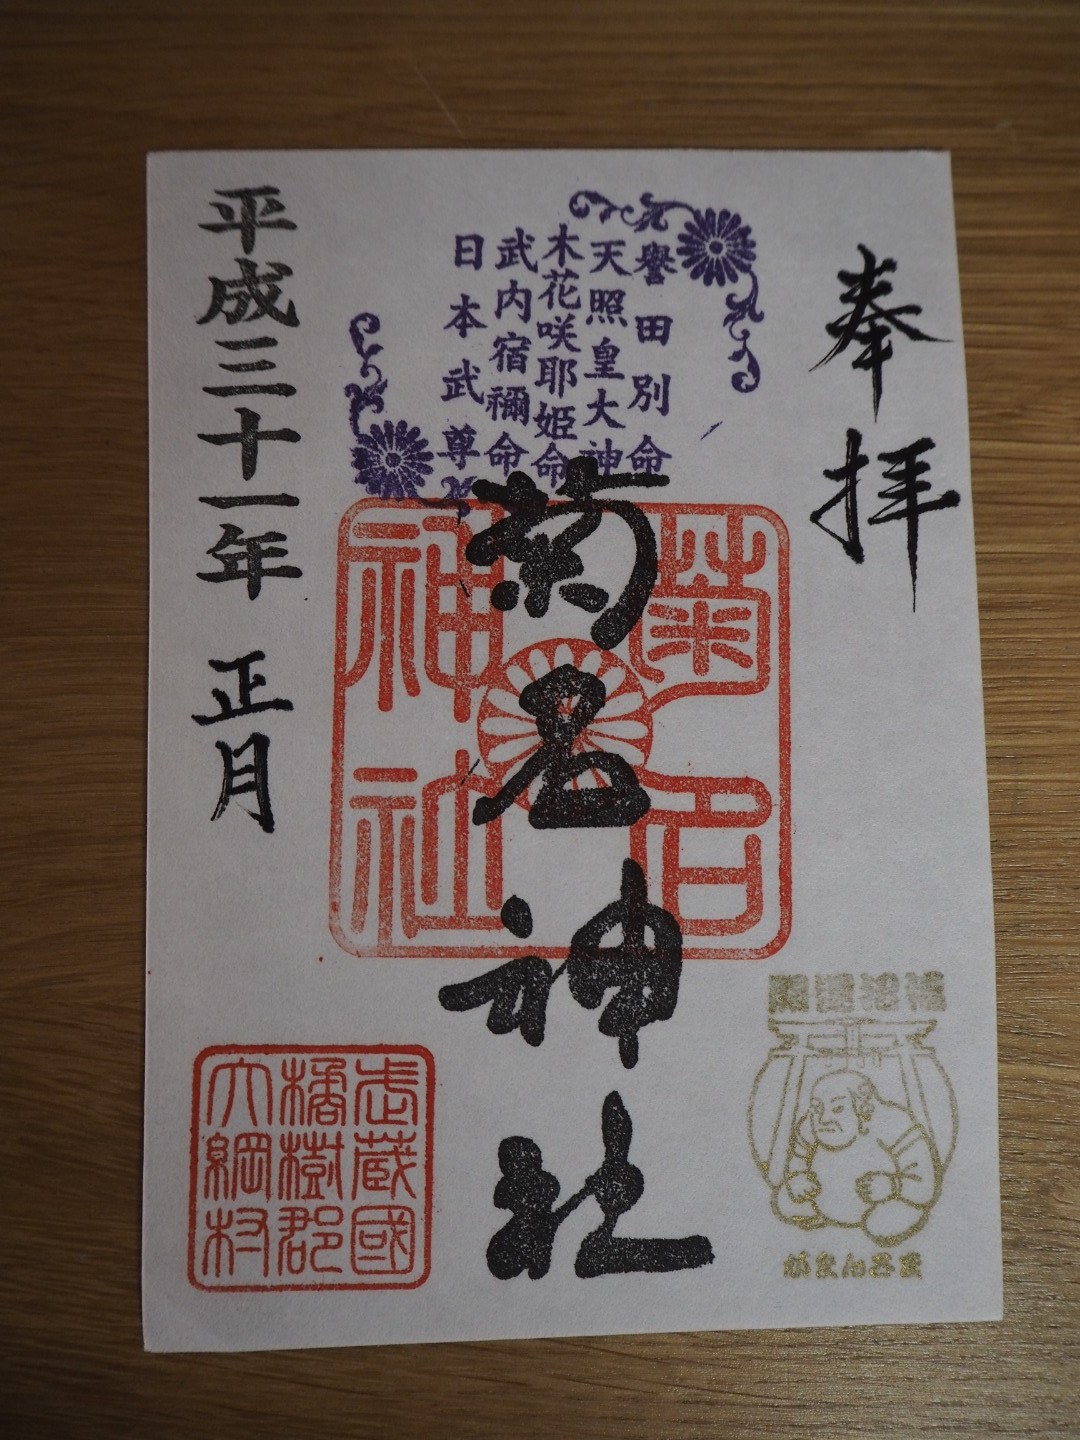 奉拝
譽田別命
天照皇大神
木花咲耶姫命
武内宿禰命
日本武尊
菊名神社
菊名
神社
平成三十一年 正月
開運招福
がまんさま
武蔵國
橘樹郡
大綱村